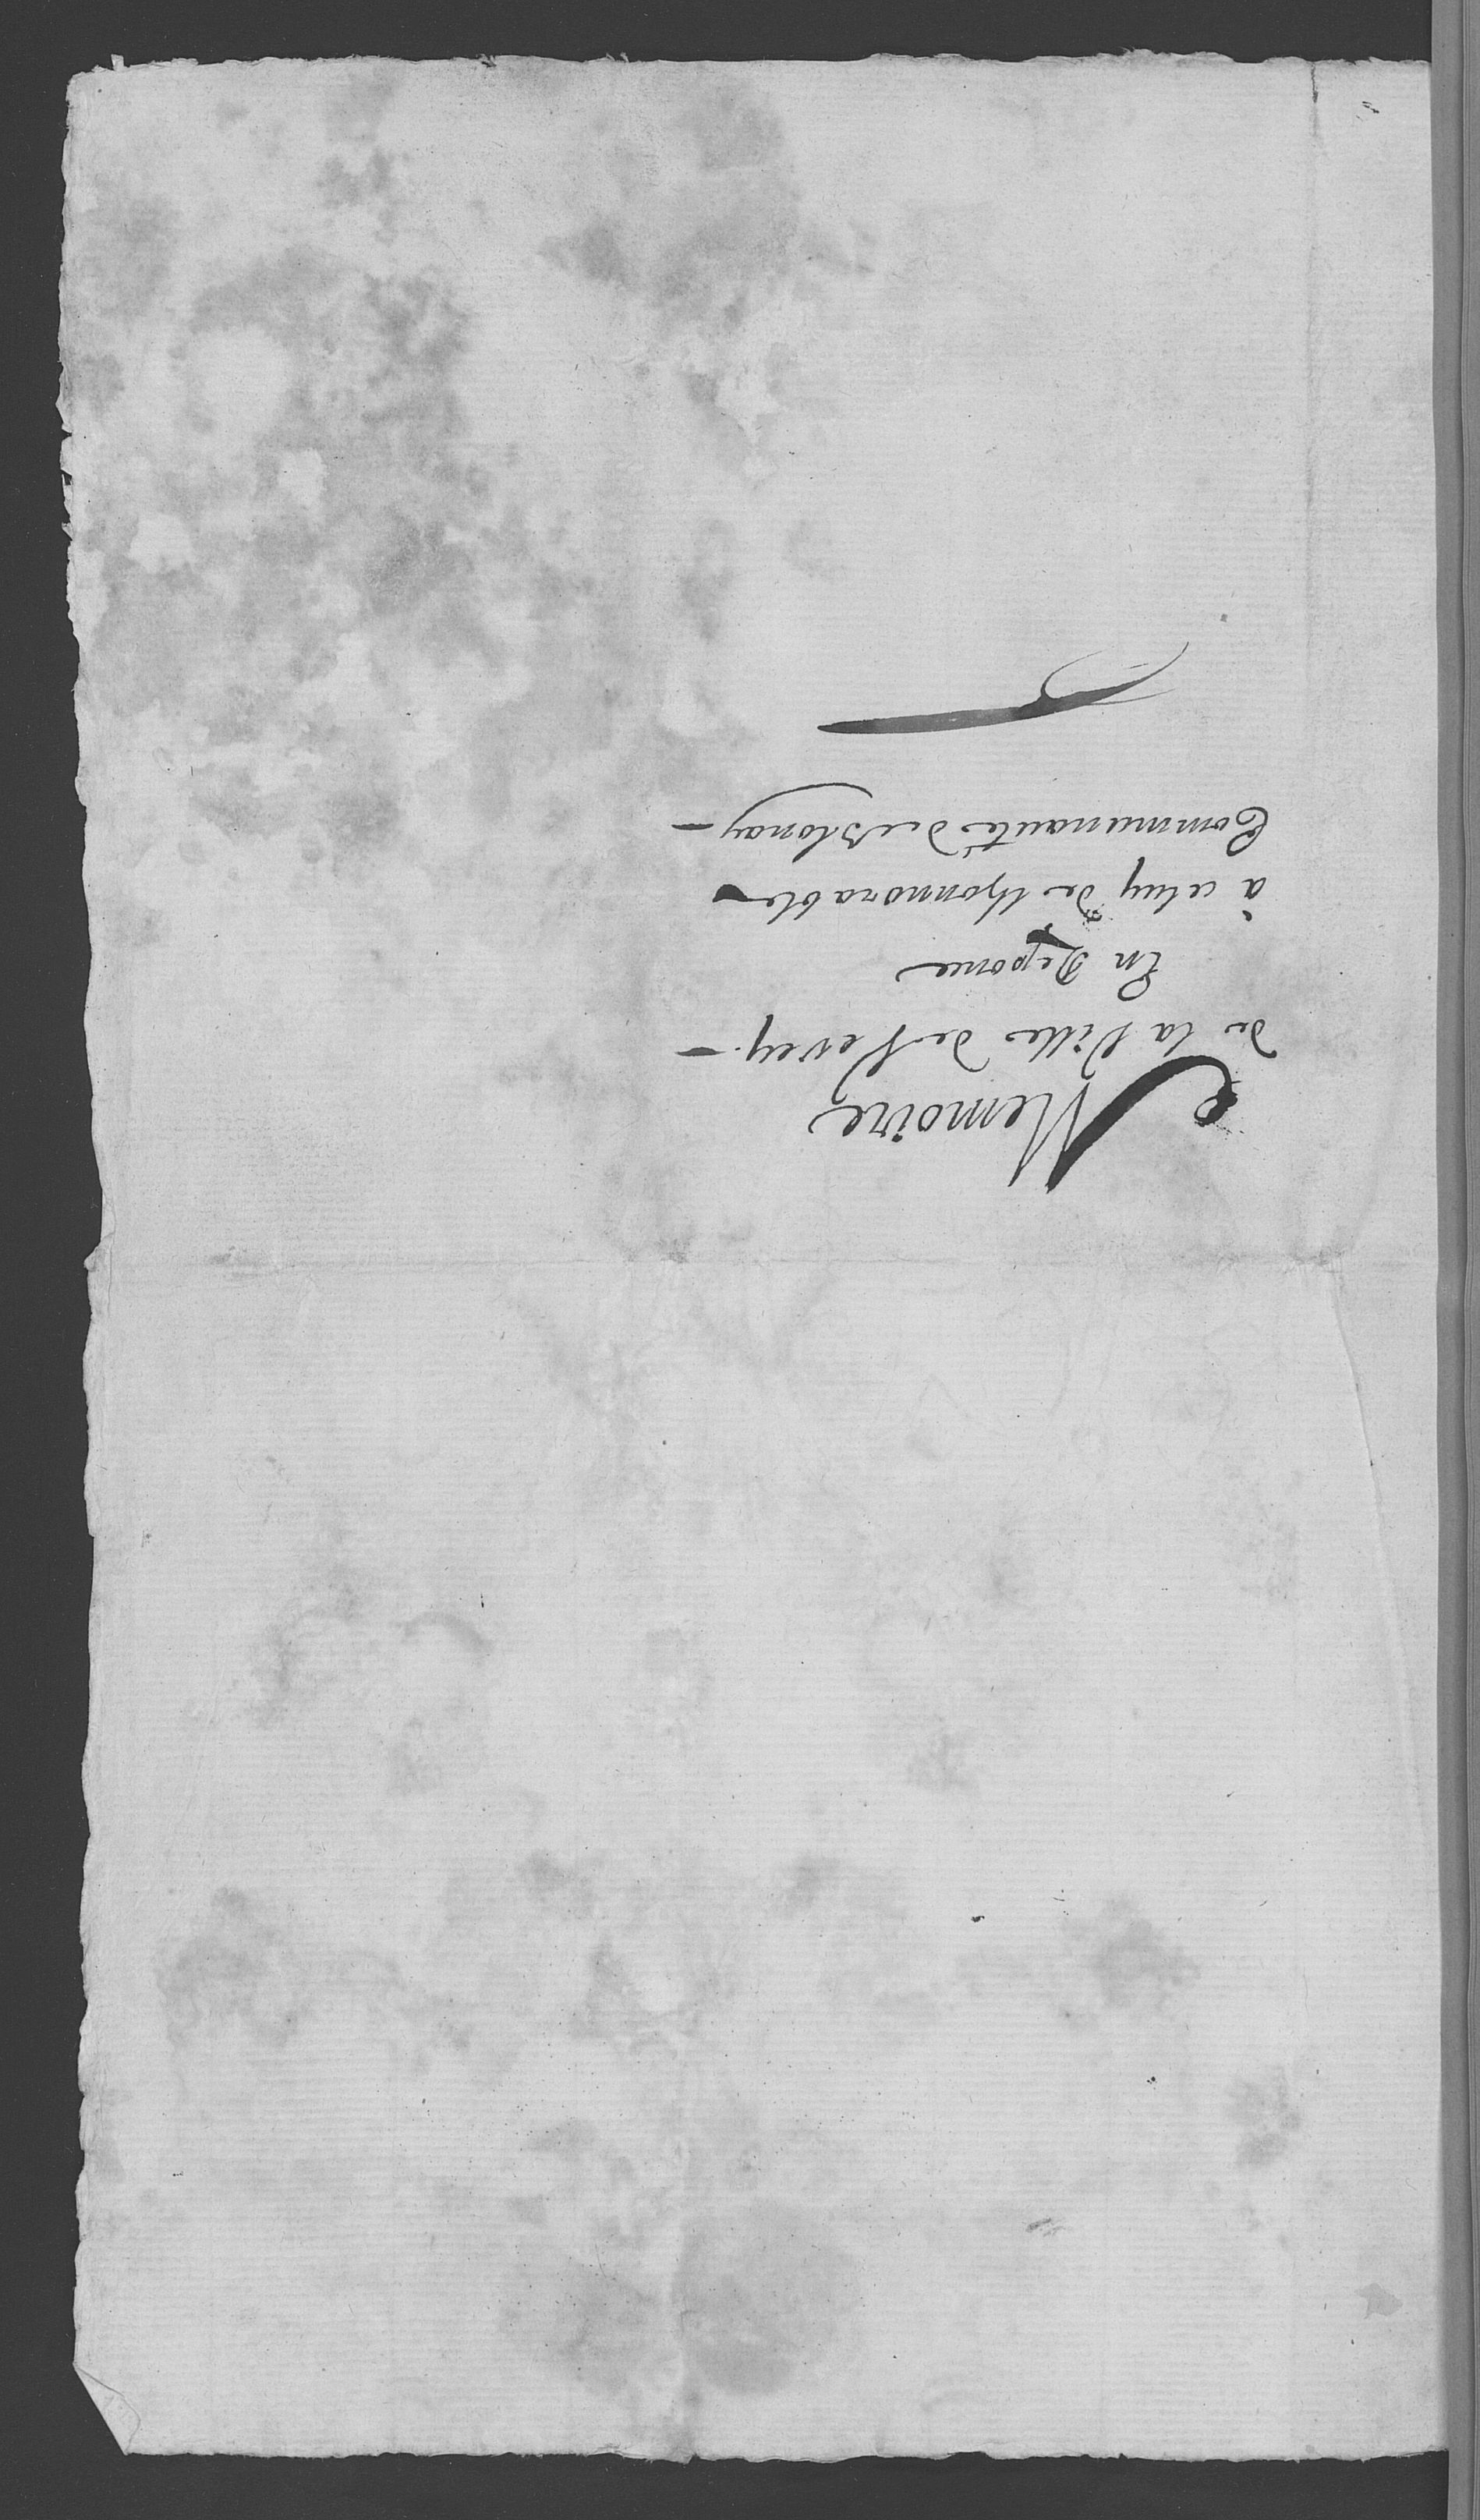 Memoire
de la Ville de Vevey.
En Reponce
à celuy de Lhonnorable
Communauté de Blonay